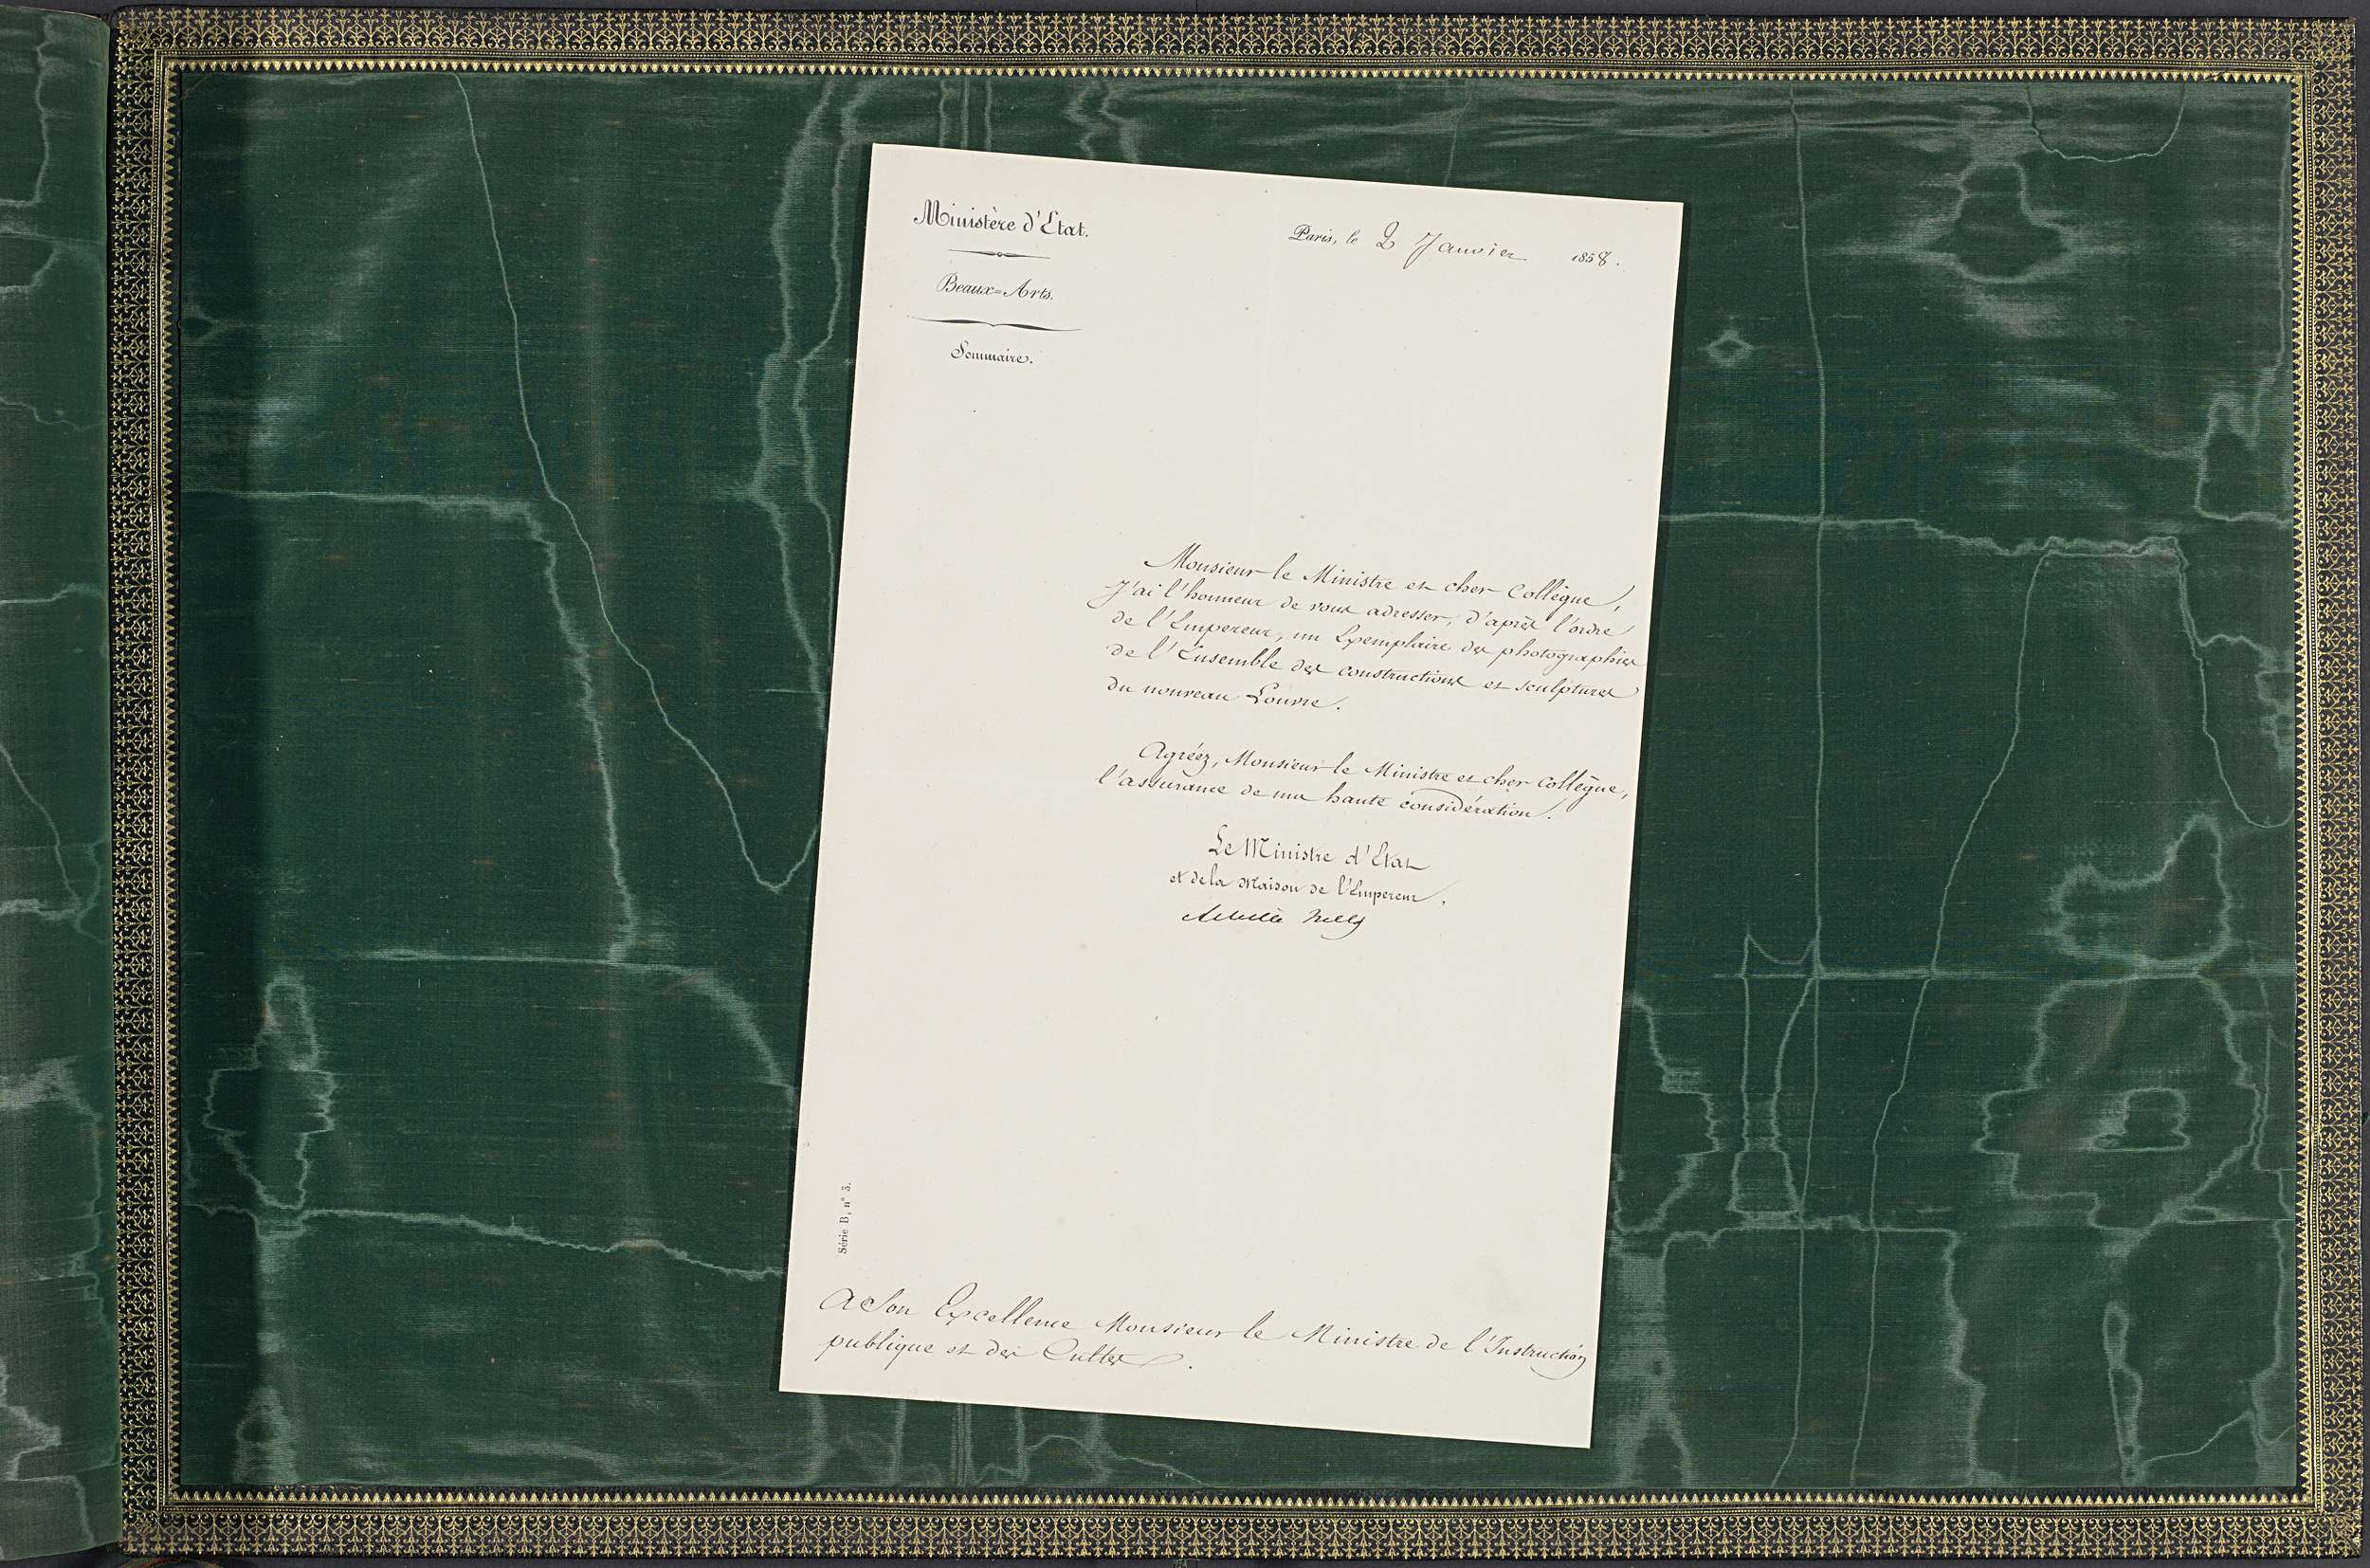 Ministère d'Etat.
Paris, le 2 Janvier 1858.
Beaux=Arts.
Sommaire.
Monsieur le Ministre et cher Collègue,
J'ai l'honneur de vous adresser, d'après l'ordre
de l'Empereur, un Exemplaire des photographies
de l'Ensemble des constructions et sculptures
du nouveau Louvre.
Agréez, Monsieur le Ministre et cher Collègue,
l'assurance de ma haute considération.
Le Ministre d'Etat
et de la Maison de l'Empereur,
Achille Fould
Série B, n° 3.
A Son Excellence Monsieur le Ministre de l'Instruction
publique et des Cultes.